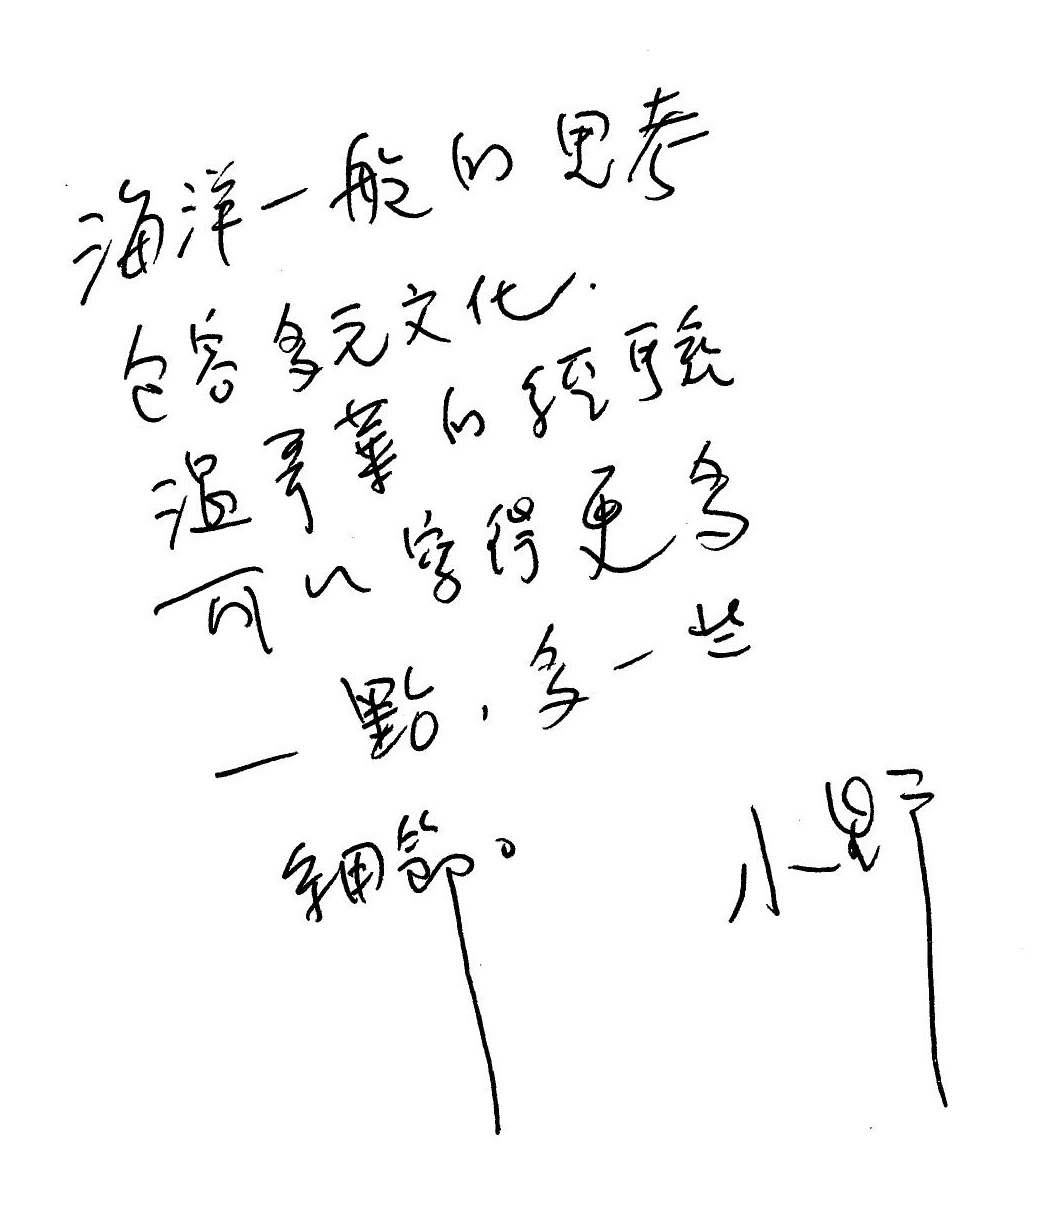 海洋一般的思考
包容多元文化.
溫哥華的經驗
可以寫得更多
一點,多一些
細節。
小野